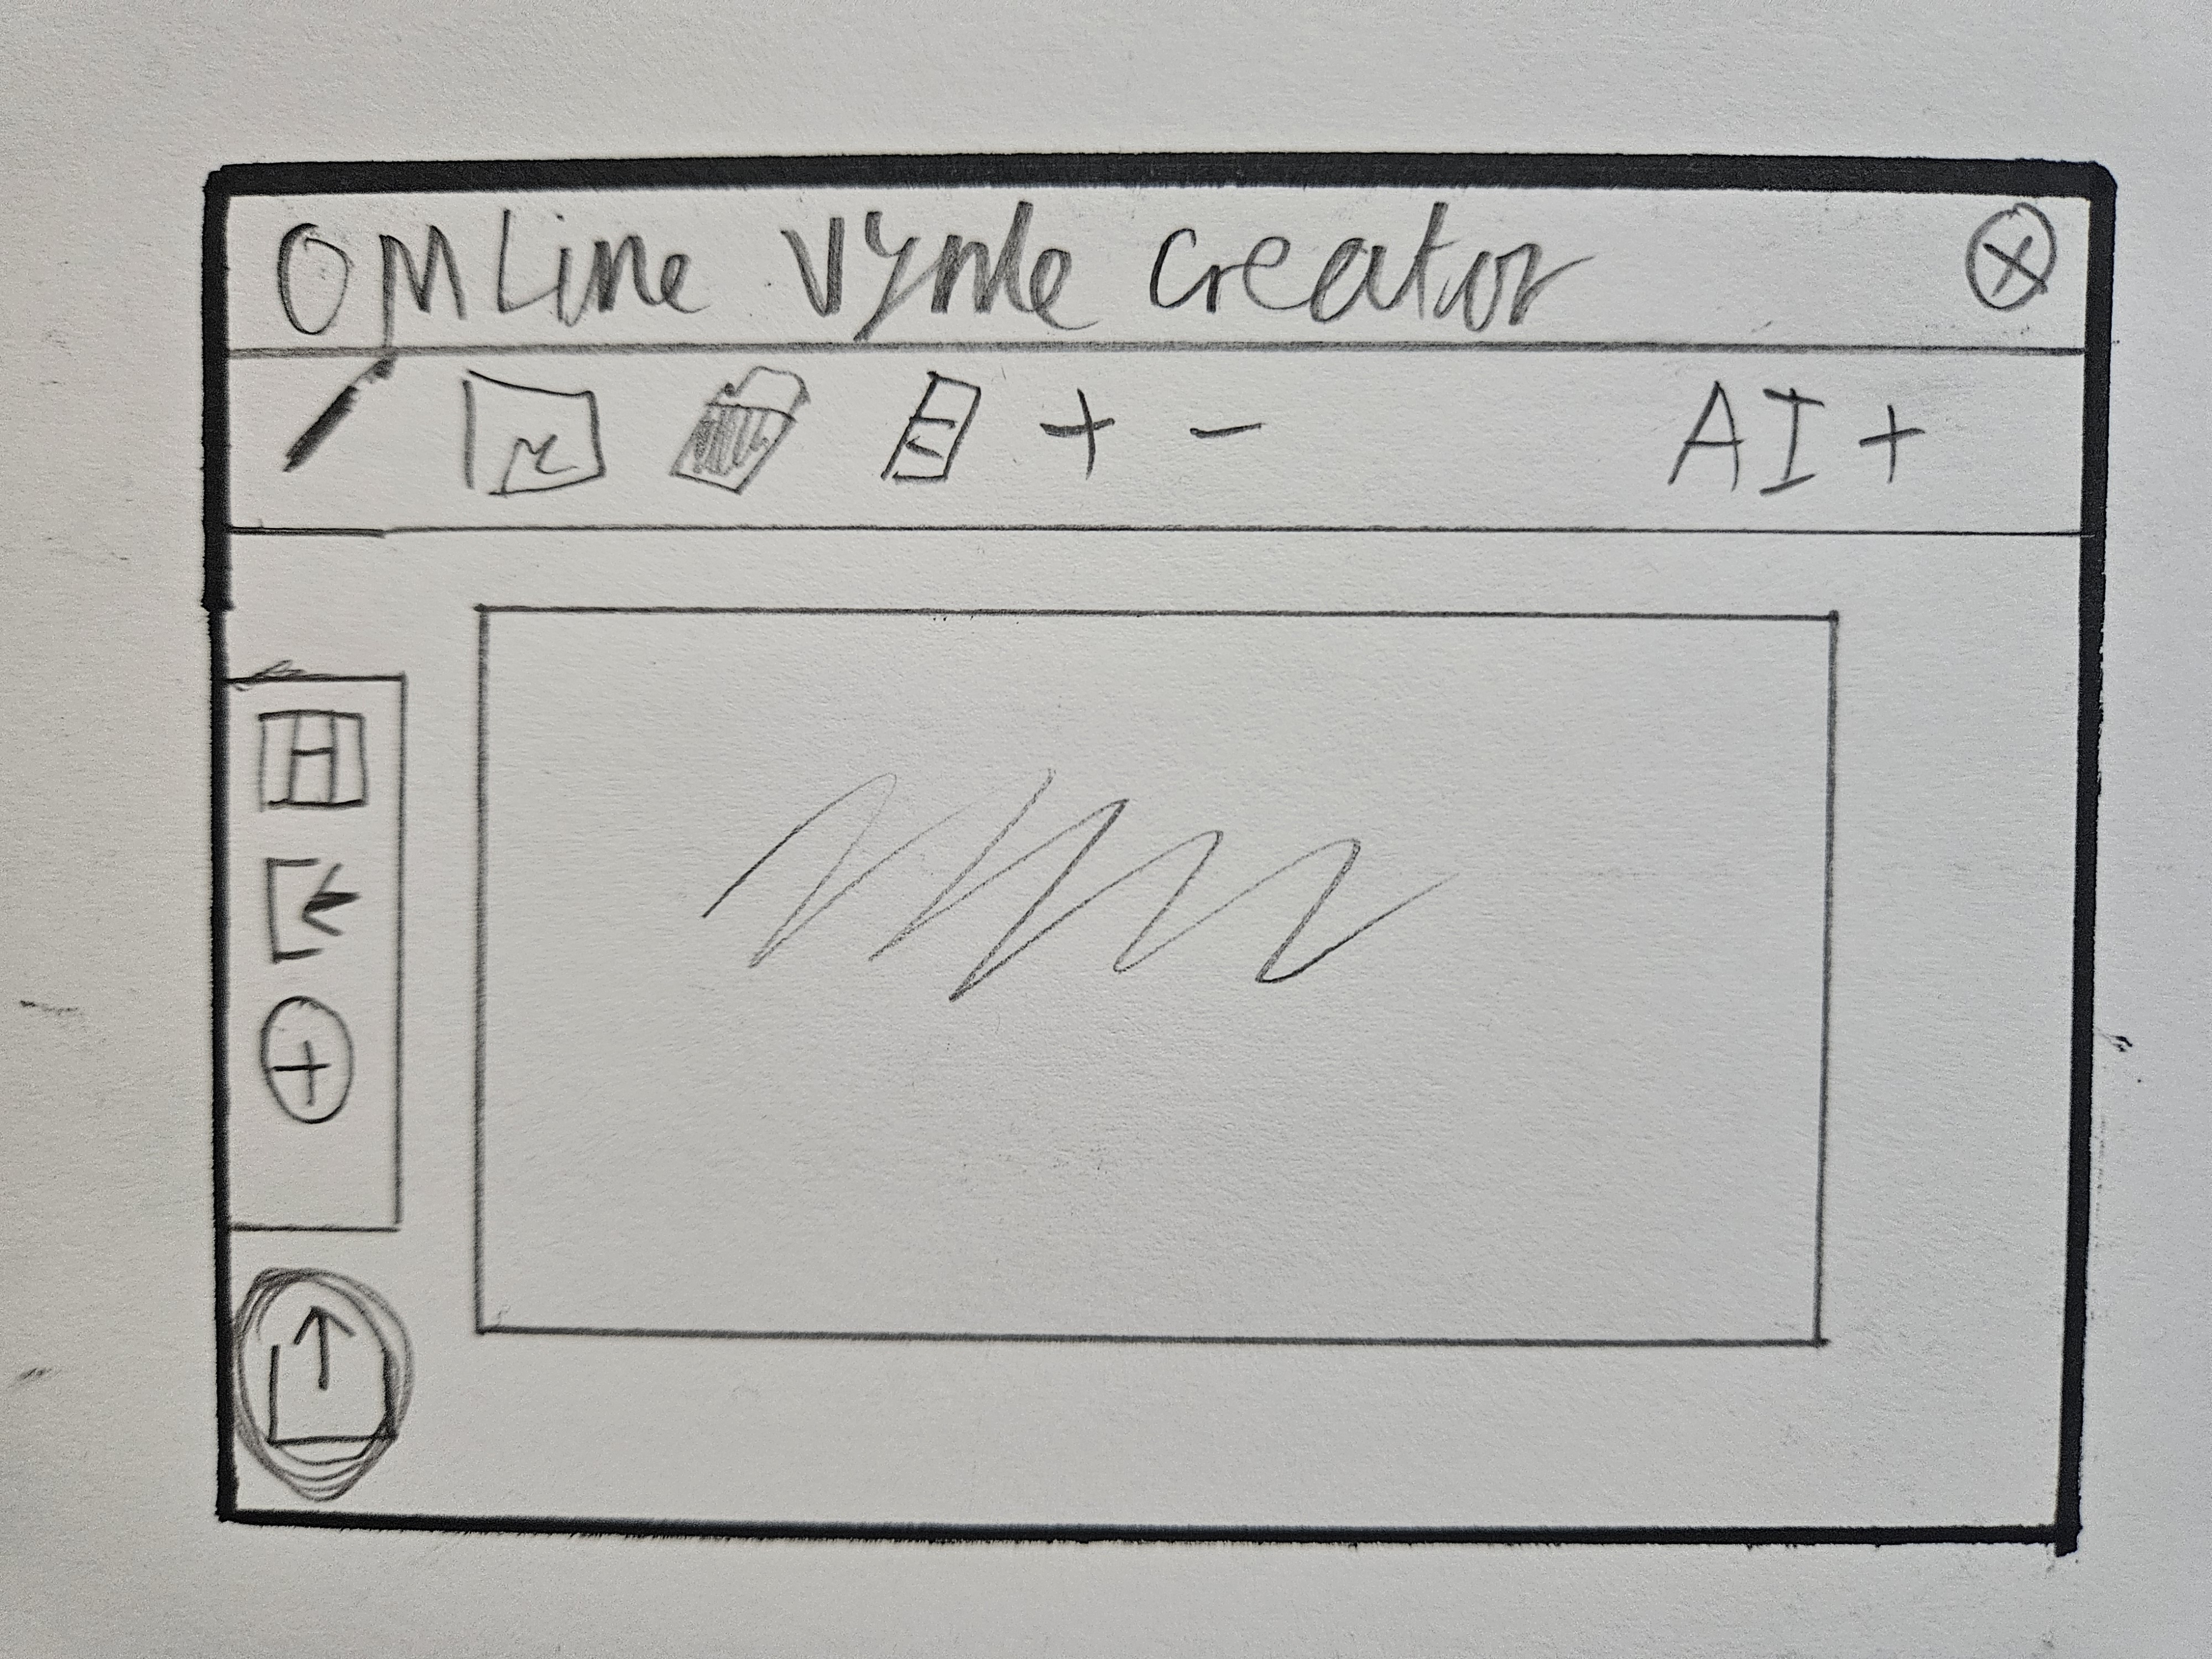 OMLine Vymle Creator
+ - AI +